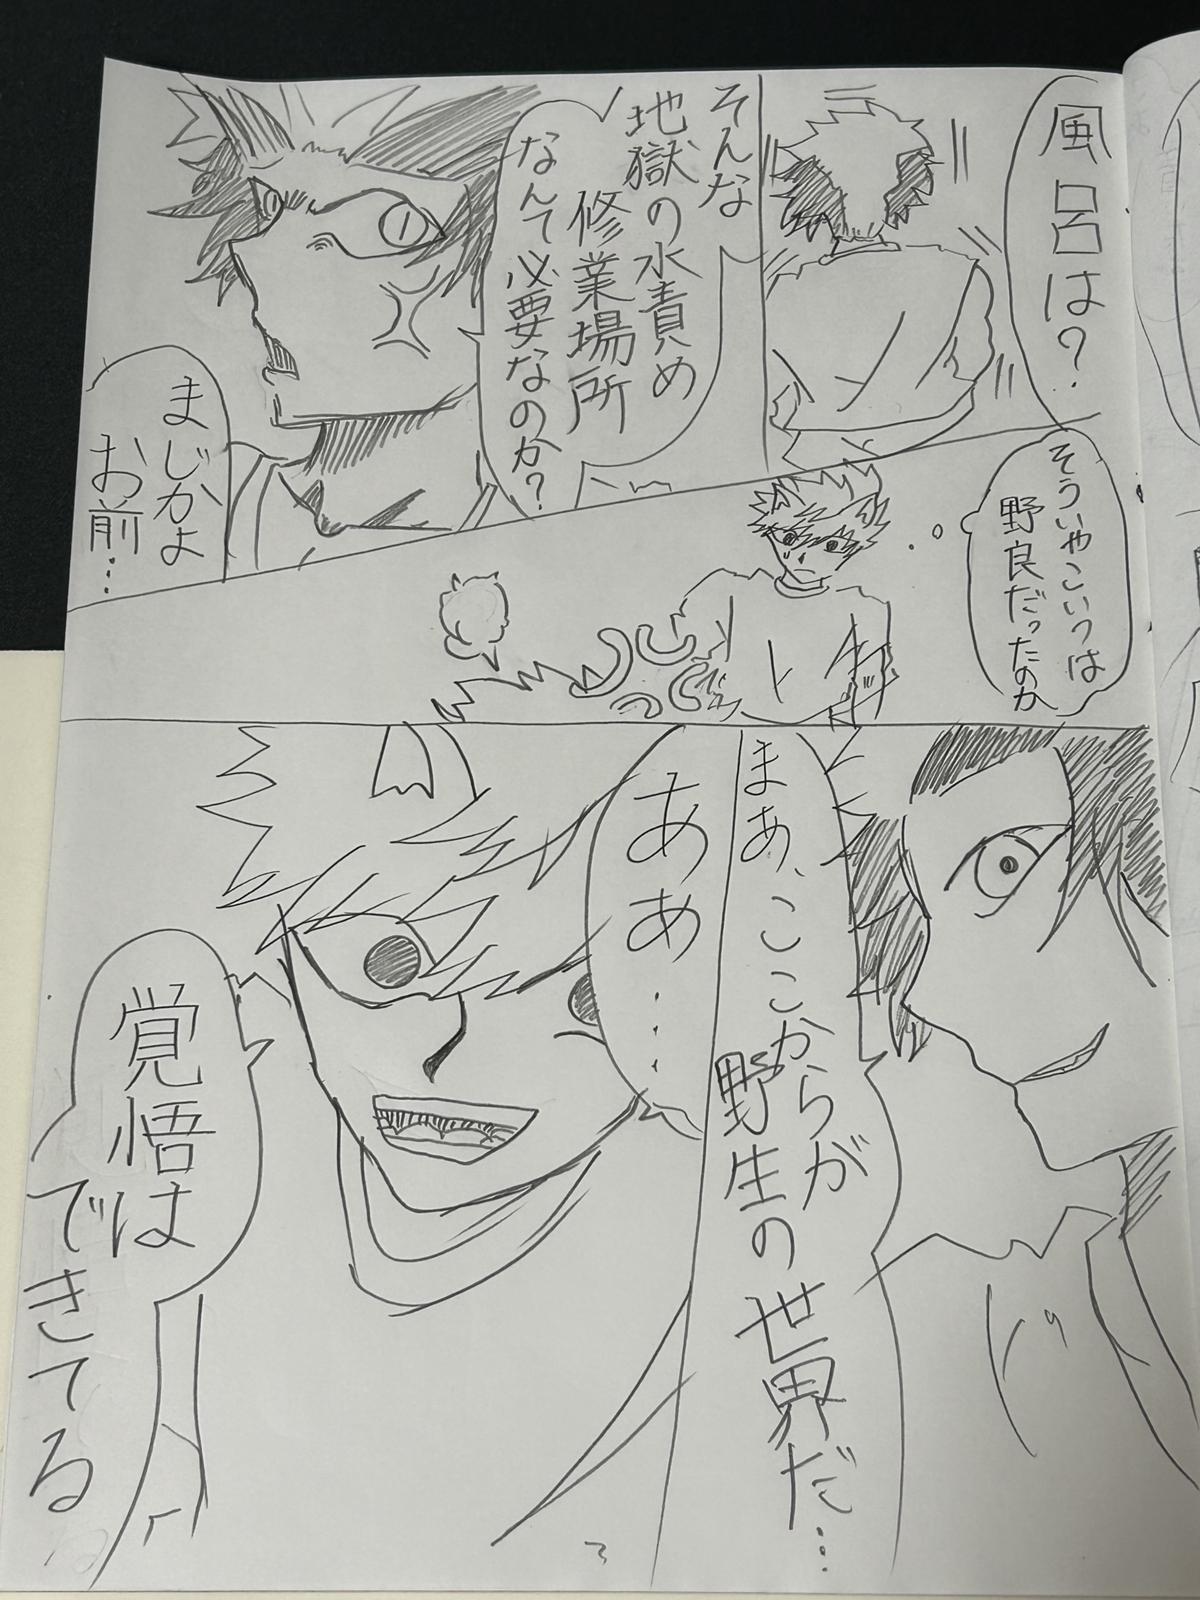 風呂は？
そんな
地獄の水責め
修業場所
なんて必要なのか？
まじかよ
お前…
そういやこいつは
野良だったのか
まあ、ここからが
野生の世界だ…
ああ…
覚悟は
できてる